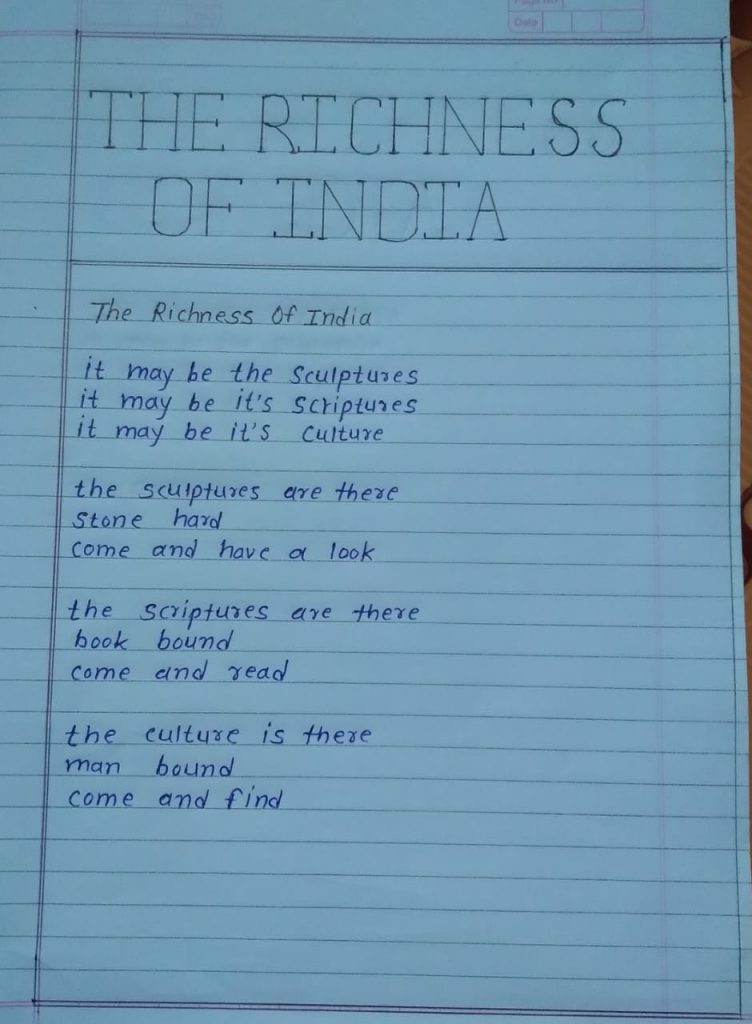 Page No
Date
THE RICHNESS
OF INDIA
The Richness Of India
it may be the sculptures
it may be it's scriptures
it may be it's culture
the sculptures are there
stone hard
come and have a look
the scriptures are there
book bound
come and read
the culture is there
man bound
come and find